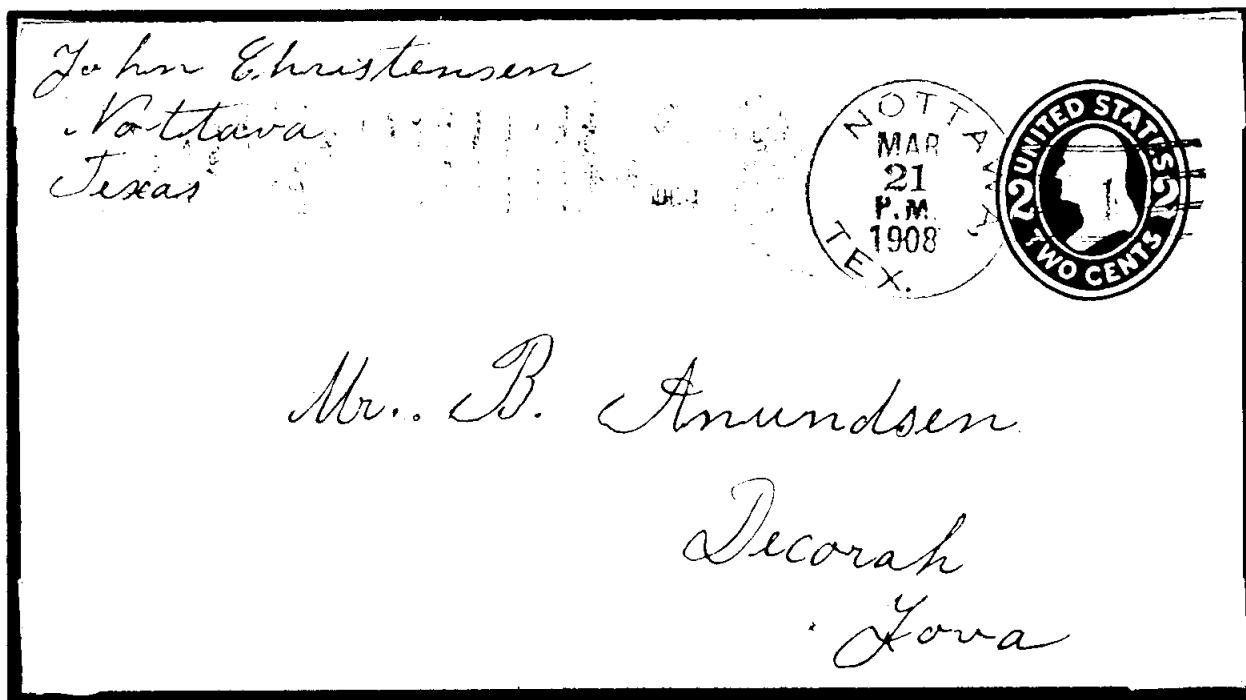 John Christensen
Nottava
Texas
NOTTAWA, TEX.
MAR
21
P.M.
1908
UNITED STATES
2 2
TWO CENTS
1
Mr. B. Anundsen
Decorah
Iova